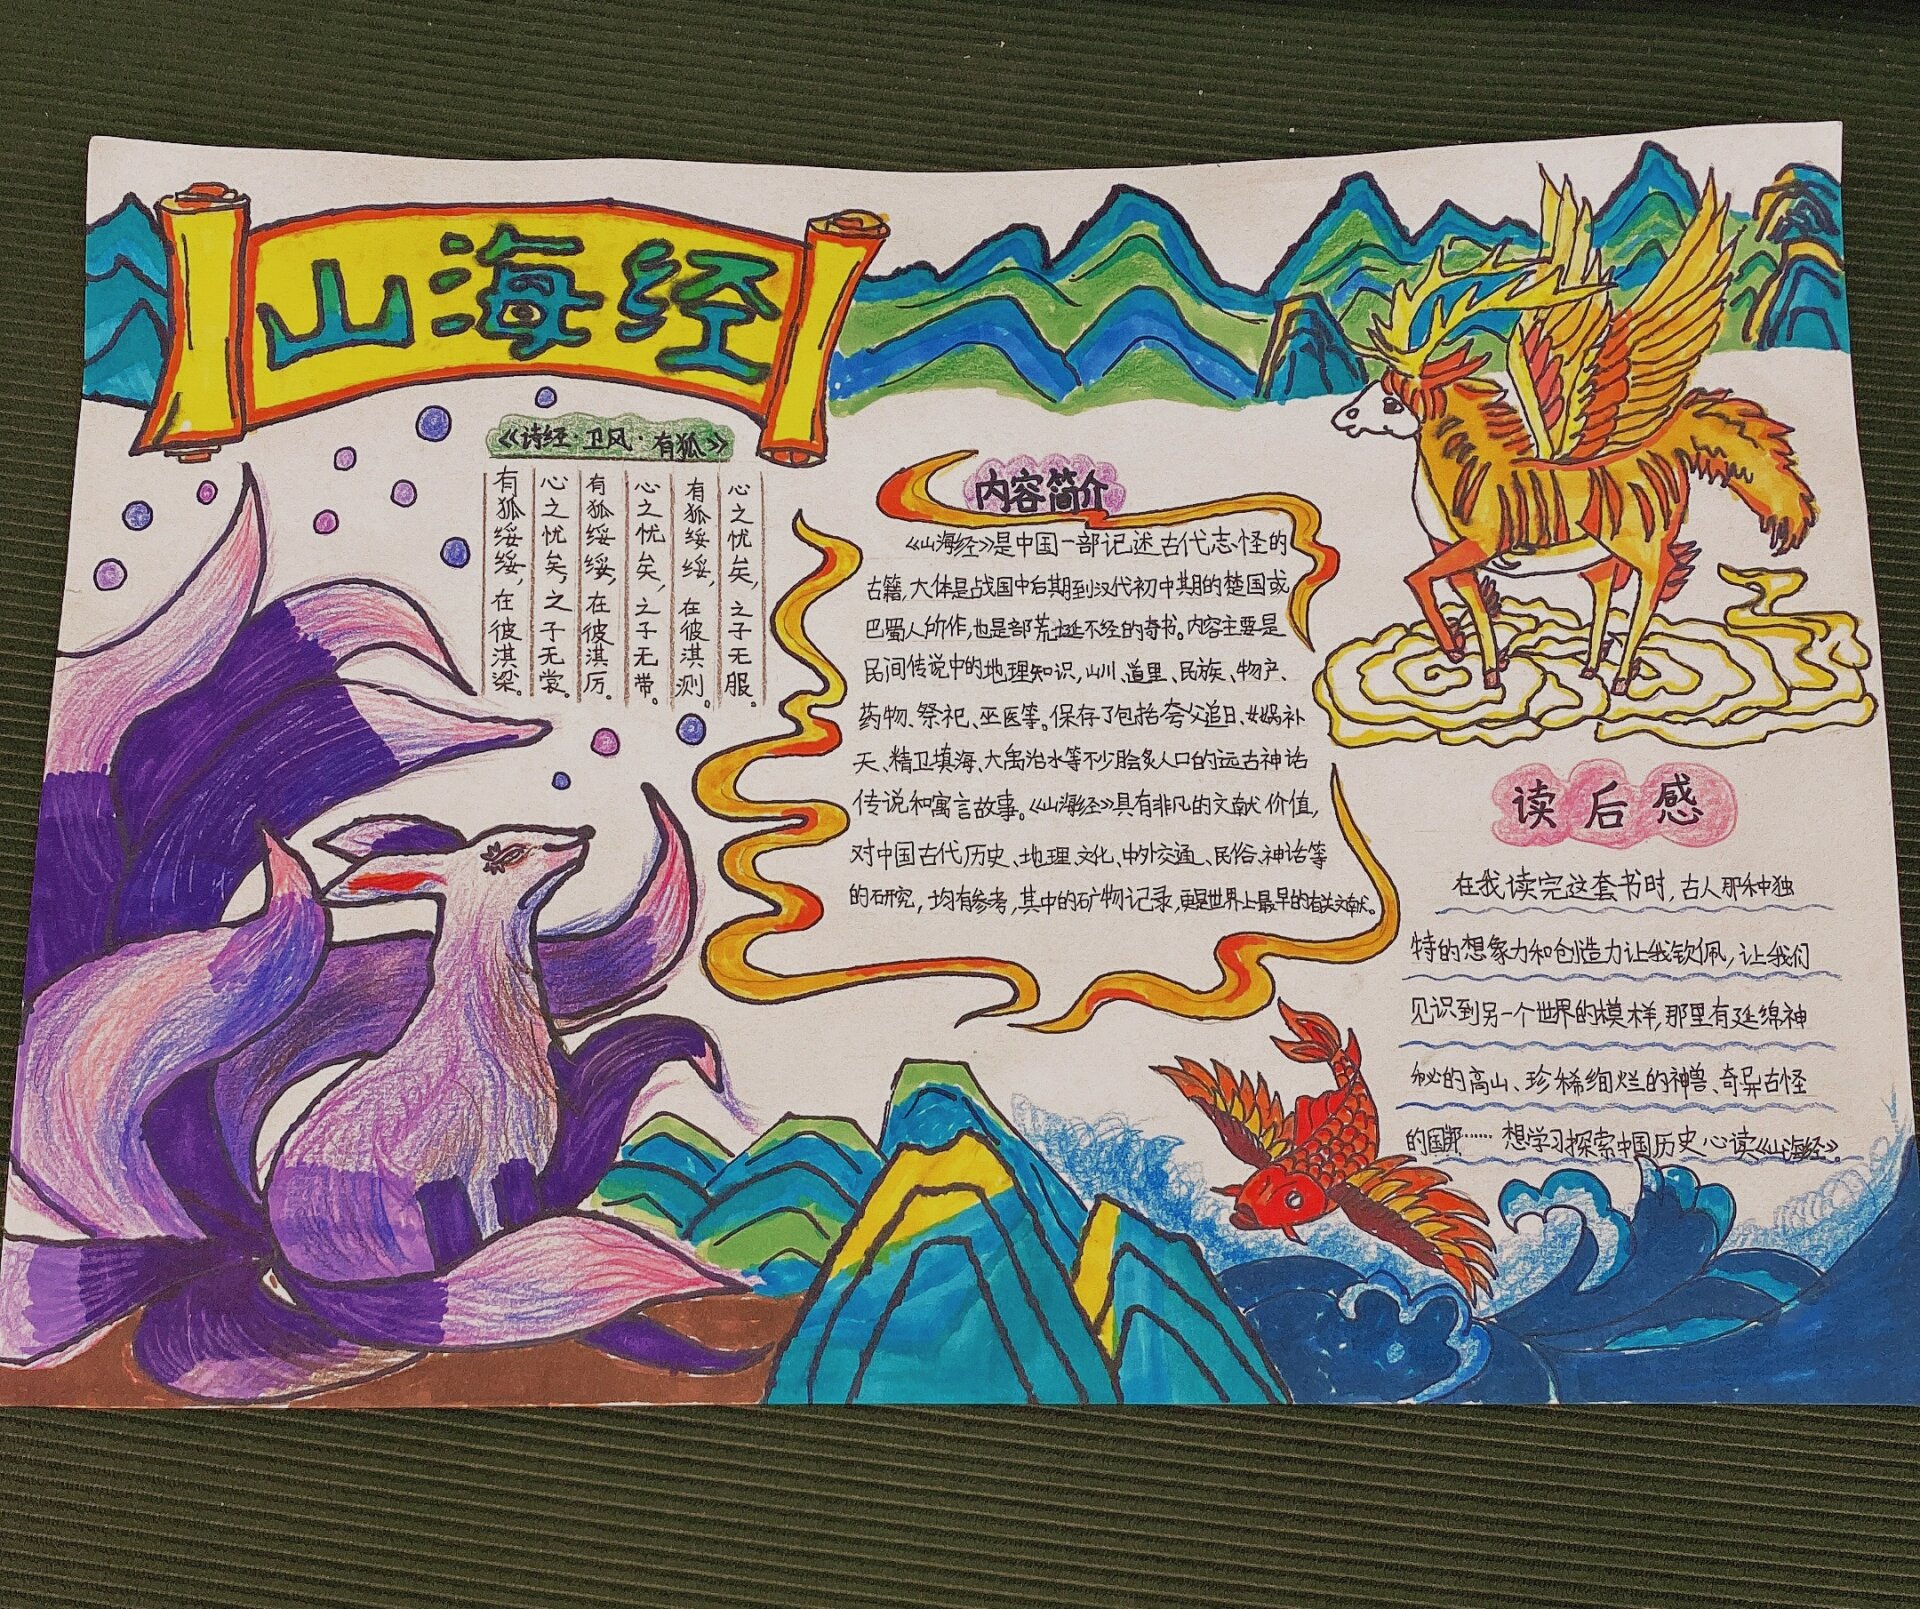 山海经
《诗经·卫风·有狐》
有狐绥绥,在彼淇梁。
心之忧矣,之子无裳。
有狐绥绥,在彼淇厉。
心之忧矣,之子无带。
有狐绥绥,在彼淇测。
心之忧矣,之子无服.
内容简介
《山海经》是中国一部记述古代志怪的
古籍,大体是战国中后期到汉代初中期的楚国或
巴蜀人所作,也是部荒诞不经的奇书。内容主要是
民间传说中的地理知识,山川、道里、民族、物产、
药物、祭祀、巫医等。保存了包括夸父追日、女娲补
天、精卫填海、大禹治水等不少脍炙人口的远古神话
传说和寓言故事。《山海经》具有非凡的文献价值,
对中国古代历史、地理、文化、中外交通、民俗、神话等
的研究,均有参考,其中的矿物记录,更是世界上最早的有关文献。
读后感
在我读完这套书时,古人那种独
特的想象力和创造力让我钦佩,让我们
见识到另一个世界的模样,那里有延绵神
秘的高山、珍稀绚烂的神兽、奇异古怪
的国郡……想学习探索中国历史心读《山海经》。